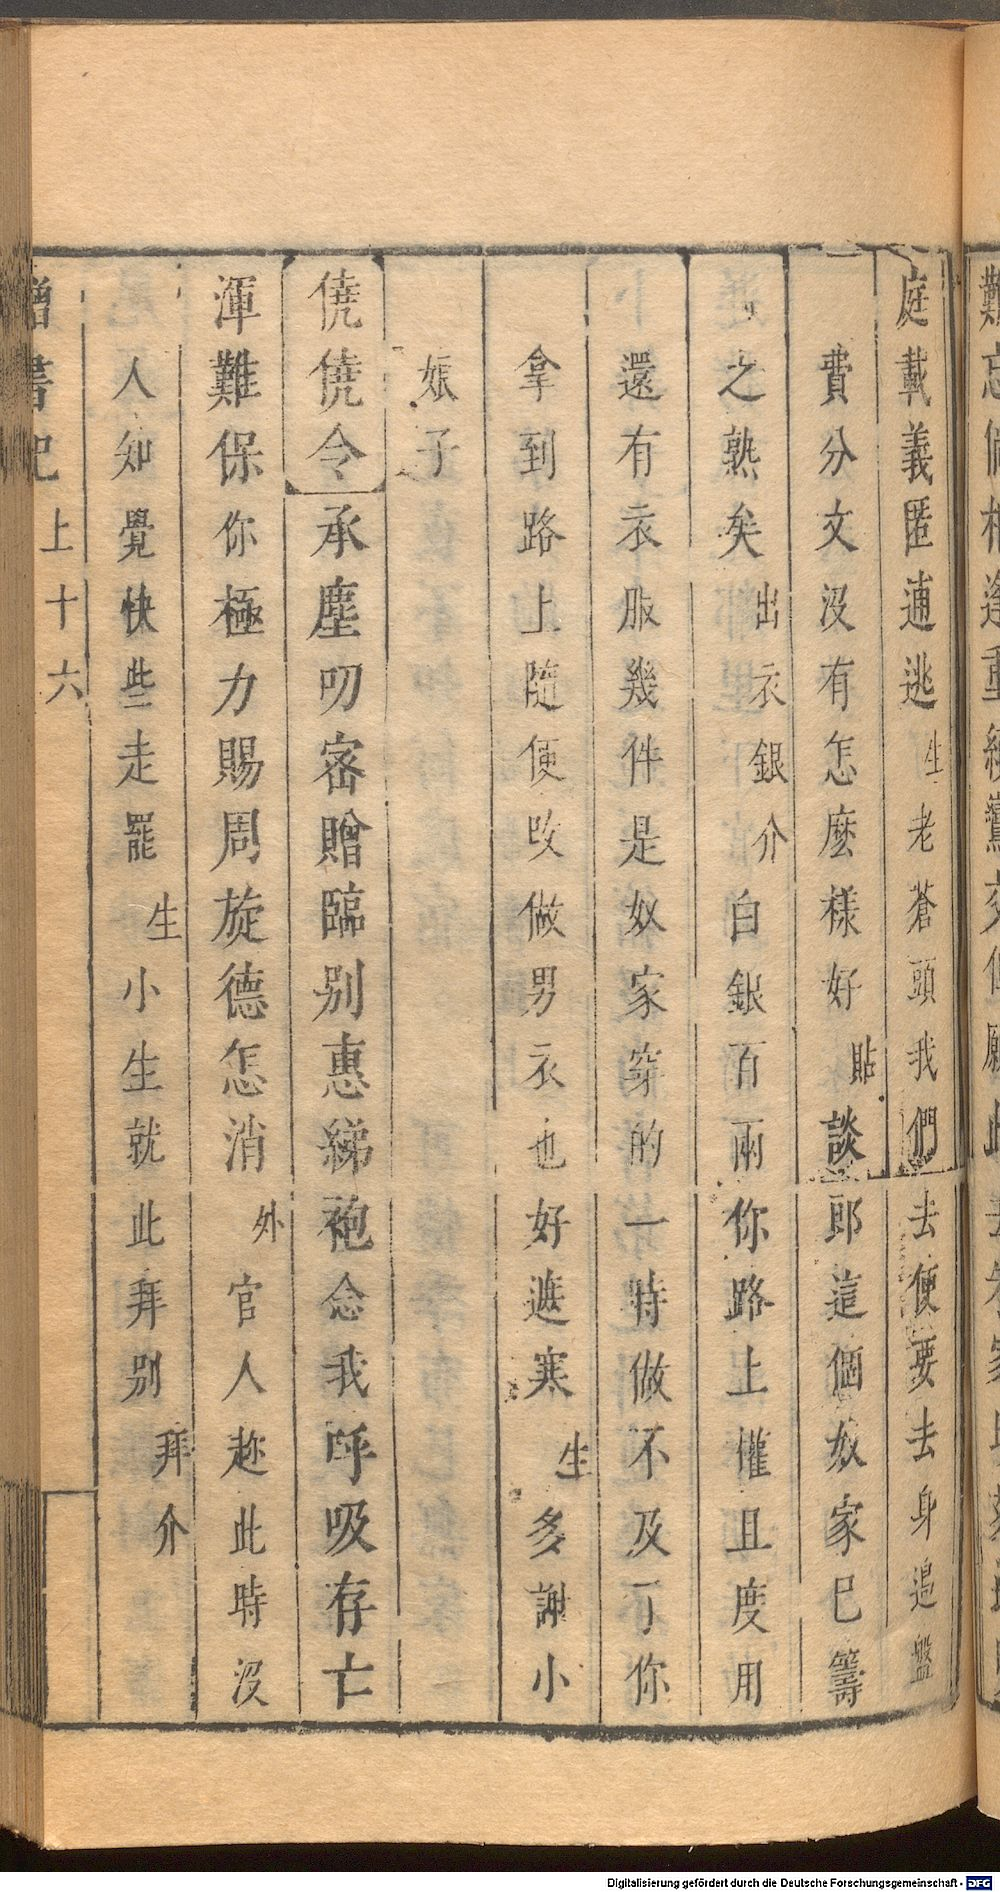 庭載義匿逋逃生老蒼頭我們去便要去身邉盤
費分文沒有怎麼樣好貼談郎這個奴家巳籌
之熟矣出衣銀介白銀百兩你路上懽且度用
還有衣服幾件是奴家穿的一時做不及了你
拿到路上隨便改做男衣也好遮寒生多謝小
娠子
僥僥令承塵叨宻贈臨别惠綈袍念我呼吸存亡
渾難保你極力賜周旋德怎消外官人趂此時沒
人知覺快些走罷生小生就此拜别拜介
上十六
Digitalisierung gefördert durch die Deutsche Forschungsgemeinschaft - DFG